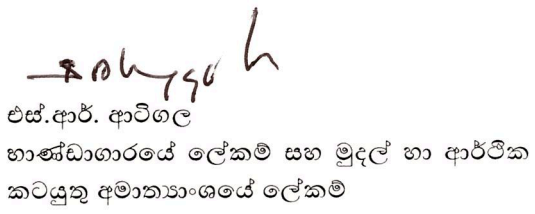 එස්.ආර්. ආටිගල
භාණ්ඩාගාරයේ ලේකම් සහ මුදල් හා ආර්ථික
කටයුතු අමාත්‍යාංශයේ ලේකම්